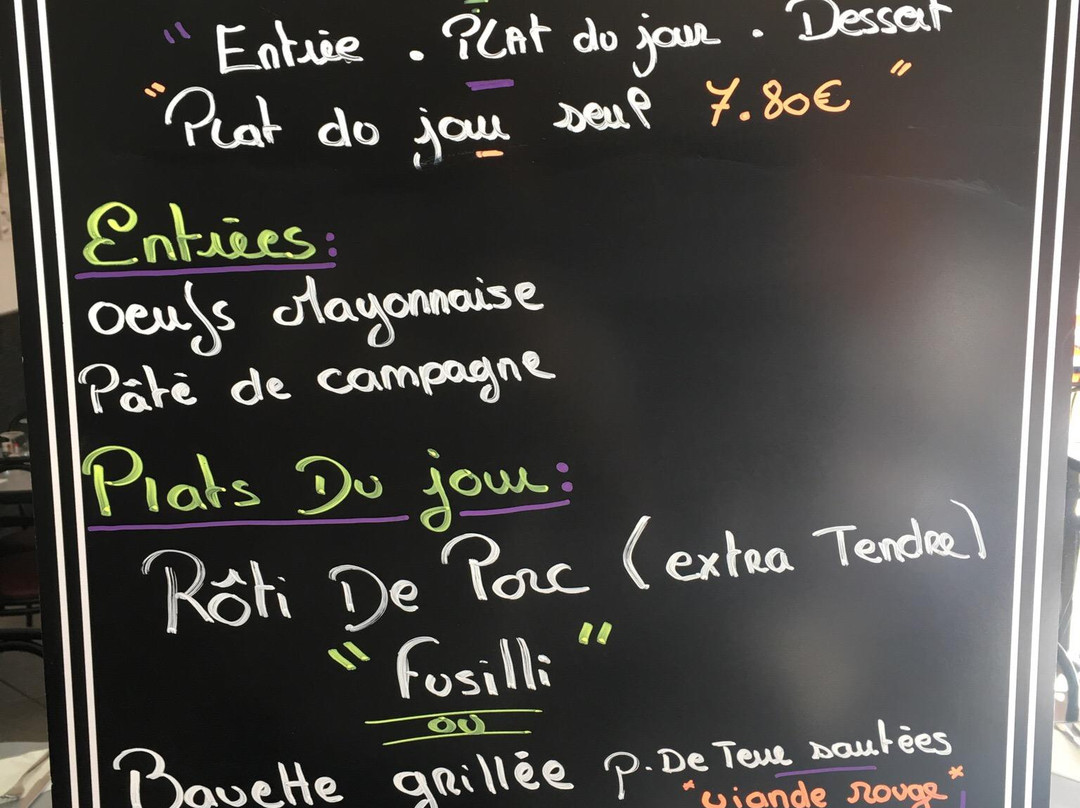 " Entrée . PLAT du jour . Dessert
" Plat du jour seul 7.80€ "
Entrées:
oeufs Mayonnaise
Pâté de campagne
Plats Du jour:
Rôti De Porc (extra Tendre)
" Fusilli "
ou
Bavette grillée p. De Terre sautées
*viande rouge*